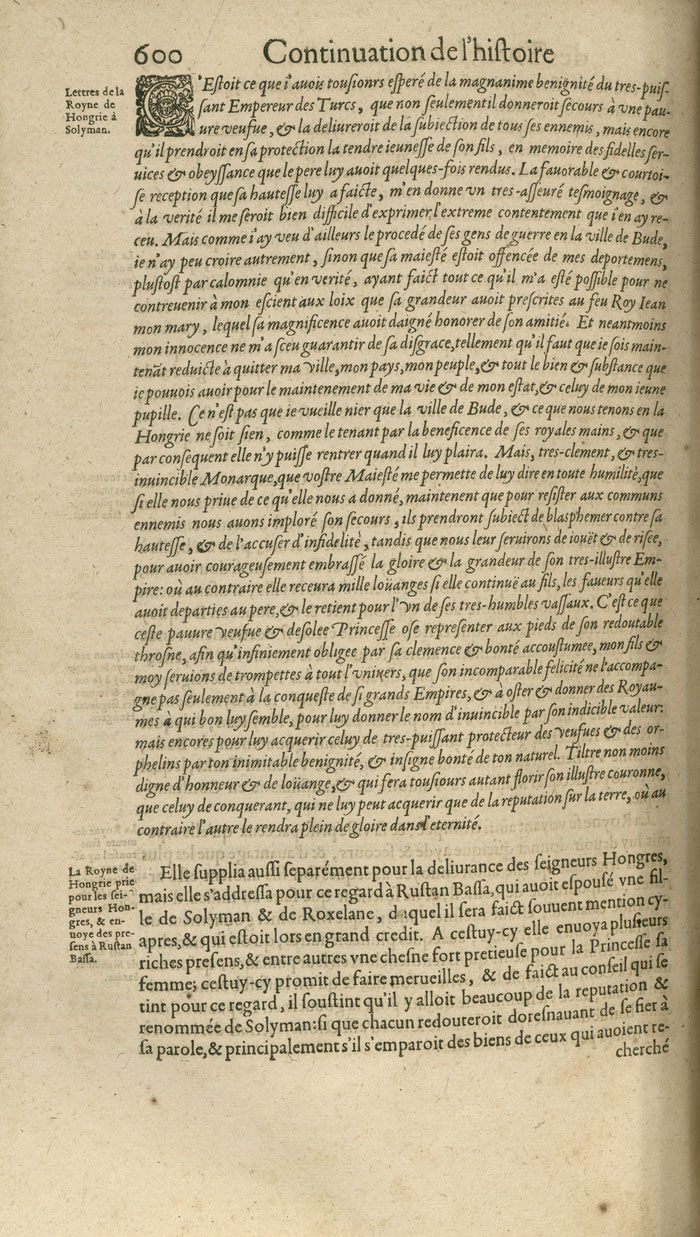 600 Continuation de l'histoire
Lettres de la
Royne de
Hongrie à
Solyman.
C'Estoit ce que i'auois tousionrs esperé de la magnanime benignité du tres-puis-
sant Empereur des Turcs, que non seulement il donneroit secours à vne pau-
ure veufue, & la deliureroit de la subiection de tous ses ennemis, mais encore
qu'il prendroit en sa protection la tendre ieunesse de son fils, en memoire des fidelles ser-
uices & obeyssance que le pere luy auoit quelques-fois rendus. La fauorable & courtoi-
se reception que sa hautesse luy a faicte, m'en donne vn tres-asseuré tesmoignage, &
à la verité il me seroit bien difficile d'exprimer l'extreme contentement que i'en ay re-
ceu. Mais comme i'ay veu d'ailleurs le procedé de ses gens de guerre en la ville de Bude,
ie n'ay peu croire autrement, sinon que sa maiesté estoit offencée de mes deportemens,
plustost par calomnie qu'en verité, ayant faict tout ce qu'il m'a esté possible pour ne
contreuenir à mon escient aux loix que sa grandeur auoit prescrites au feu Roy Iean
mon mary, lequel sa magnificence auoit daigné honorer de son amitié. Et neantmoins
mon innocence ne m'a sceu guarantir de sa disgrace, tellement qu'il faut que ie sois main-
tenāt reduicte à quitter ma ville, mon pays, mon peuple, & tout le bien & substance que
ie pouuois auoir pour le maintenement de ma vie & de mon estat, & celuy de mon ieune
pupille. Ce n'est pas que ie vueille nier que la ville de Bude, & ce que nous tenons en la
Hongrie ne soit sien, comme le tenant par la beneficence de ses royales mains, & que
par consequent elle n'y puisse rentrer quand il luy plaira. Mais, tres-clement, & tres-
inuincible Monarque, que vostre Maiesté me permette de luy dire en toute humilité, que
si elle nous priue de ce qu'elle nous a donné, maintenent que pour resister aux communs
ennemis nous auons imploré son secours, ils prendront subiect de blasphemer contre sa
hautesse, & de l'accuser d'infidelité, tandis que nous leur seruirons de iouët & de risée,
pour auoir courageusement embrassé la gloire & la grandeur de son tres-illustre Em-
pire: où au contraire elle receura mille loüanges si elle continuë au fils, les faueurs qu'elle
auoit departies au pere, & le retient pour l'vn de ses tres-humbles vassaux. C'est ce que
ceste pauure veufue & desolee Princesse ose representer aux pieds de son redoutable
throsne, afin qu'infiniement obligee par sa clemence & bonté accoustumee, mon fils &
moy seruions de trompettes à tout l'vniuers, que son incomparable felicité ne l'accompa-
gne pas seulement à la conqueste de si grands Empires, & à oster & donner des Royau-
mes à qui bon luy semble, pour luy donner le nom d'inuincible par son indicible valeur:
mais encores pour luy acquerir celuy de tres-puissant protecteur des veufues & des or-
phelins par ton inimitable benignité, & insigne bonté de ton naturel. Tiltre non moins
digne d'honneur & de loüange, & qui fera tousiours autant florir son illustre couronne,
que celuy de conquerant, qui ne luy peut acquerir que de la reputation sur la terre, où au
contraire l'autre le rendra plein de gloire dans l'eternité.
La Royne de
Hongrie prie
pour les sei-
gneurs Hon-
gres, & en-
uoye des pre-
sens à Rustan
Bassa.
Elle supplia aussi separément pour la deliurance des seigneurs Hongres,
mais elle s'addressa pour ce regard à Rustan Bassa, qui auoit espousé vne fil-
le de Solyman & de Roxelane, d iquel il sera faict souuent mention cy-
apres, & qui estoit lors en grand credit. A cestuy-cy elle enuoya plusieurs
riches presens, & entre autres vne chesne fort pretieuse pour la Princesse sa
femme; cestuy-cy promit de faire merueilles, & de faict au conseil qui se
tint pour ce regard, il soustint qu'il y alloit beaucoup de la reputation &
renommée de Solyman: si que chacun redouteroit doresnauant de se fier à
sa parole, & principalement s'il s'emparoit des biens de ceux qui auoient re-
cherché